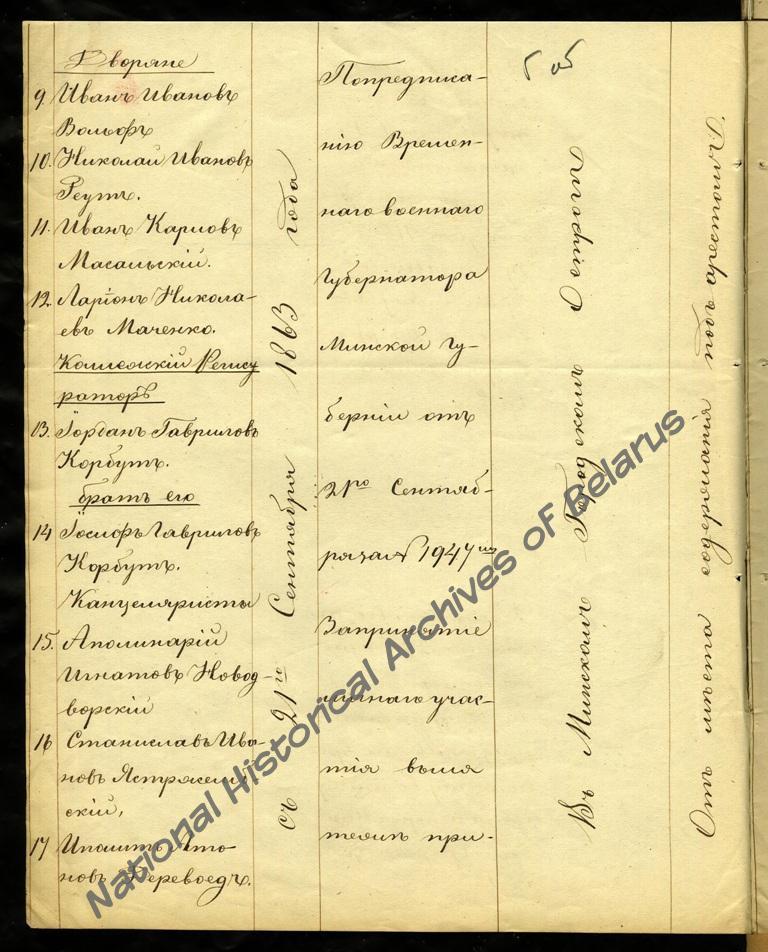 5 об
Дворяне
9. Иванъ Ивановъ
Вольфъ
10. Николай Ивановъ
Реутъ.
11. Иванъ Карловъ
Масальскій.
12. Ларіонъ Никола-
евъ Маченко.
Коллежскій Регист
раторъ
13. Іорданъ Гавриловъ
Корбутъ.
братъ его
14 Іосифъ Гавриловъ
Корбутъ.
Канцеляристы
15. Аполинарій
Игнатовъ Новод-
ворскій
16 Станиславъ Ива-
новъ Ястржемб
скій,
17 Иполитъ Анто-
новъ Вервоедъ.
съ 21го Сентября 1863 года
Попредписа-
нію Времен-
наго военнаго
Губернатора
Минской Гу-
берніи отъ
21го Сентяб-
ря за № 1947мъ
За принятіе
личнаго учас-
тія въ мя
тежѣ при-
Въ Минскомъ Городскомъ Острогѣ
Отъ мѣста содержанія подъ арестомъ.
National Historical Archives of Belarus